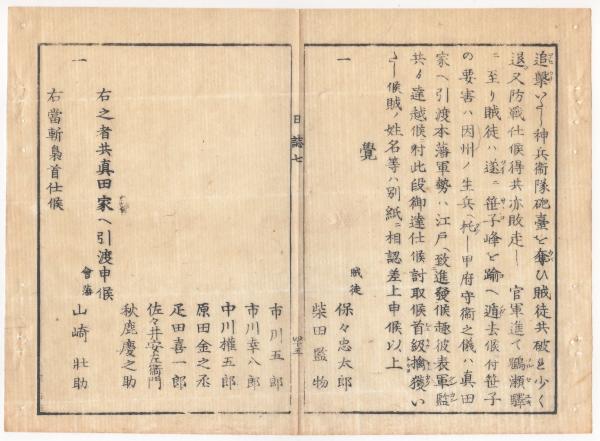 追撃いたし神兵衛隊砲臺を奪ひ賊徒共破を少く
退又防戰仕候得共亦敗走し官軍進て鶴瀬驛
ニ至り賊徒ハ遂ニ笹子峰を踰へ遁去候付笹子
の要害ハ因州ノ生兵へ托し甲府守衛之儀ハ真田
家へ引渡本藩軍勢ハ江戸へ致進發候趣彼表軍監
共ゟ達越候付此段御達仕候討取候首級擒獲い
たし候賊ノ姓名等ハ別紙ニ相認差上申候以上
覺
一
賊徒
保々忠太郎
柴田監物
日誌七
四十五
市川五郎
市川幸八郎
中川權五郎
原田金之丞
疋田喜一郎
佐々井安左衛門
秋鹿慶之助
右之者共真田家へ引渡申候
一
會藩
山崎壯助
右當斬梟首仕候